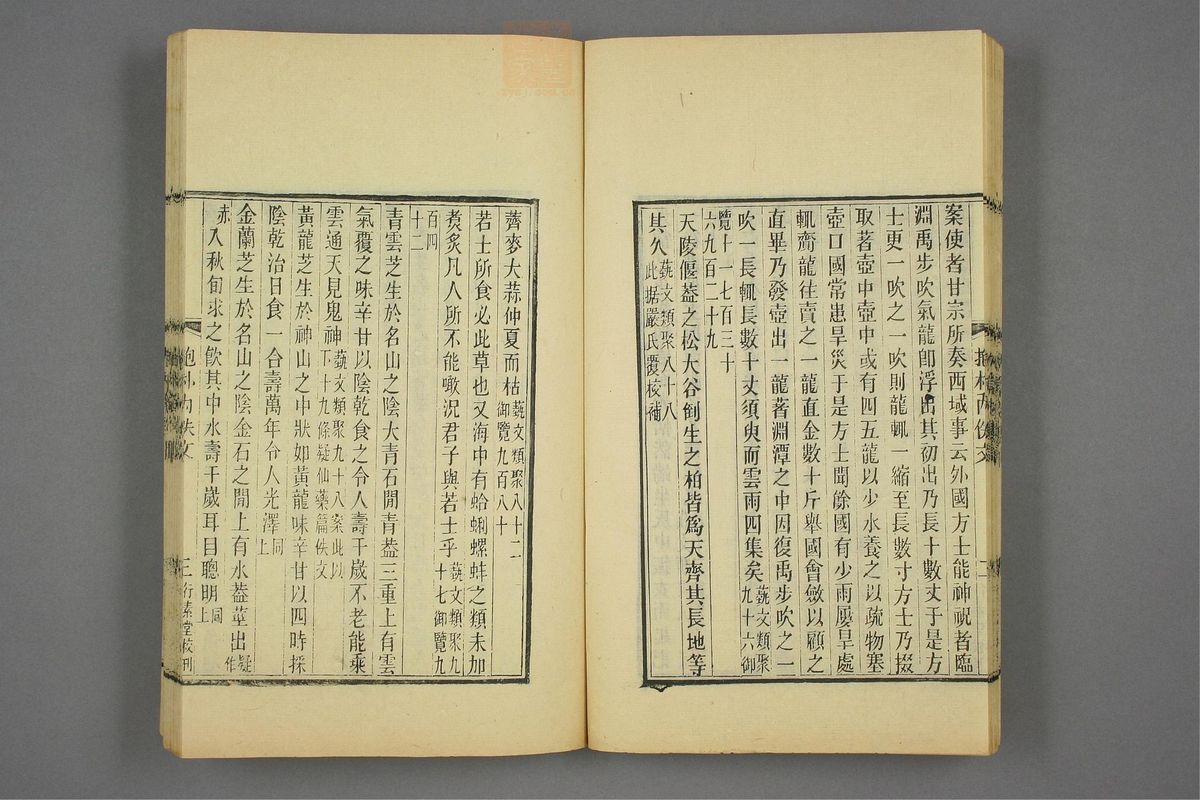 案使者甘宗所奏西域事云外國方士能神祝者臨
淵禹步吹氣龍卽浮出其初出乃長十數丈于是方
士更一吹之一吹則龍輒一縮至長數寸方士乃掇
取著壺中壺中或有四五龍以少水養之以疏物塞
壺口國常患旱災于是方士聞餘國有少雨屢旱處
輒齎龍往賣之一龍直金數十斤舉國會斂以顧之
直畢乃發壺出一龍著淵潭之中因復禹步吹之一
吹一長輒長數十丈須臾而雲雨四集矣藝文類聚九十六御
覽十一七百三十
六九百二十九
天陵偃葢之松大谷倒生之柏皆爲天齊其長地等
其久藝文類聚八十八
此据嚴氏覆校補
抱朴內佚文
二
薺麥大蒜仲夏而枯藝文類聚八十二
御覽九百八十
若士所食必此草也又海中有蛤蜊螺蚌之類未加
煑炙凡人所不能噉況君子與若士乎藝文類聚九
十七御覽九
百四
十二
青雲芝生於名山之陰大青石閒青葢三重上有雲
氣覆之味辛甘以陰乾食之令人壽千歲不老能乘
雲通天見鬼神藝文類聚九十八案此以
下十九條疑仙藥篇佚文
黃龍芝生於神山之中狀如黃龍味辛甘以四時採
陰乾治日食一合壽萬年令人光澤同
上
金蘭芝生於名山之陰金石之閒上有水葢莖出疑
作
赤入秋旬求之飲其中水壽千歲耳目聰明同
上
抱朴內佚文
三
行素堂校刊